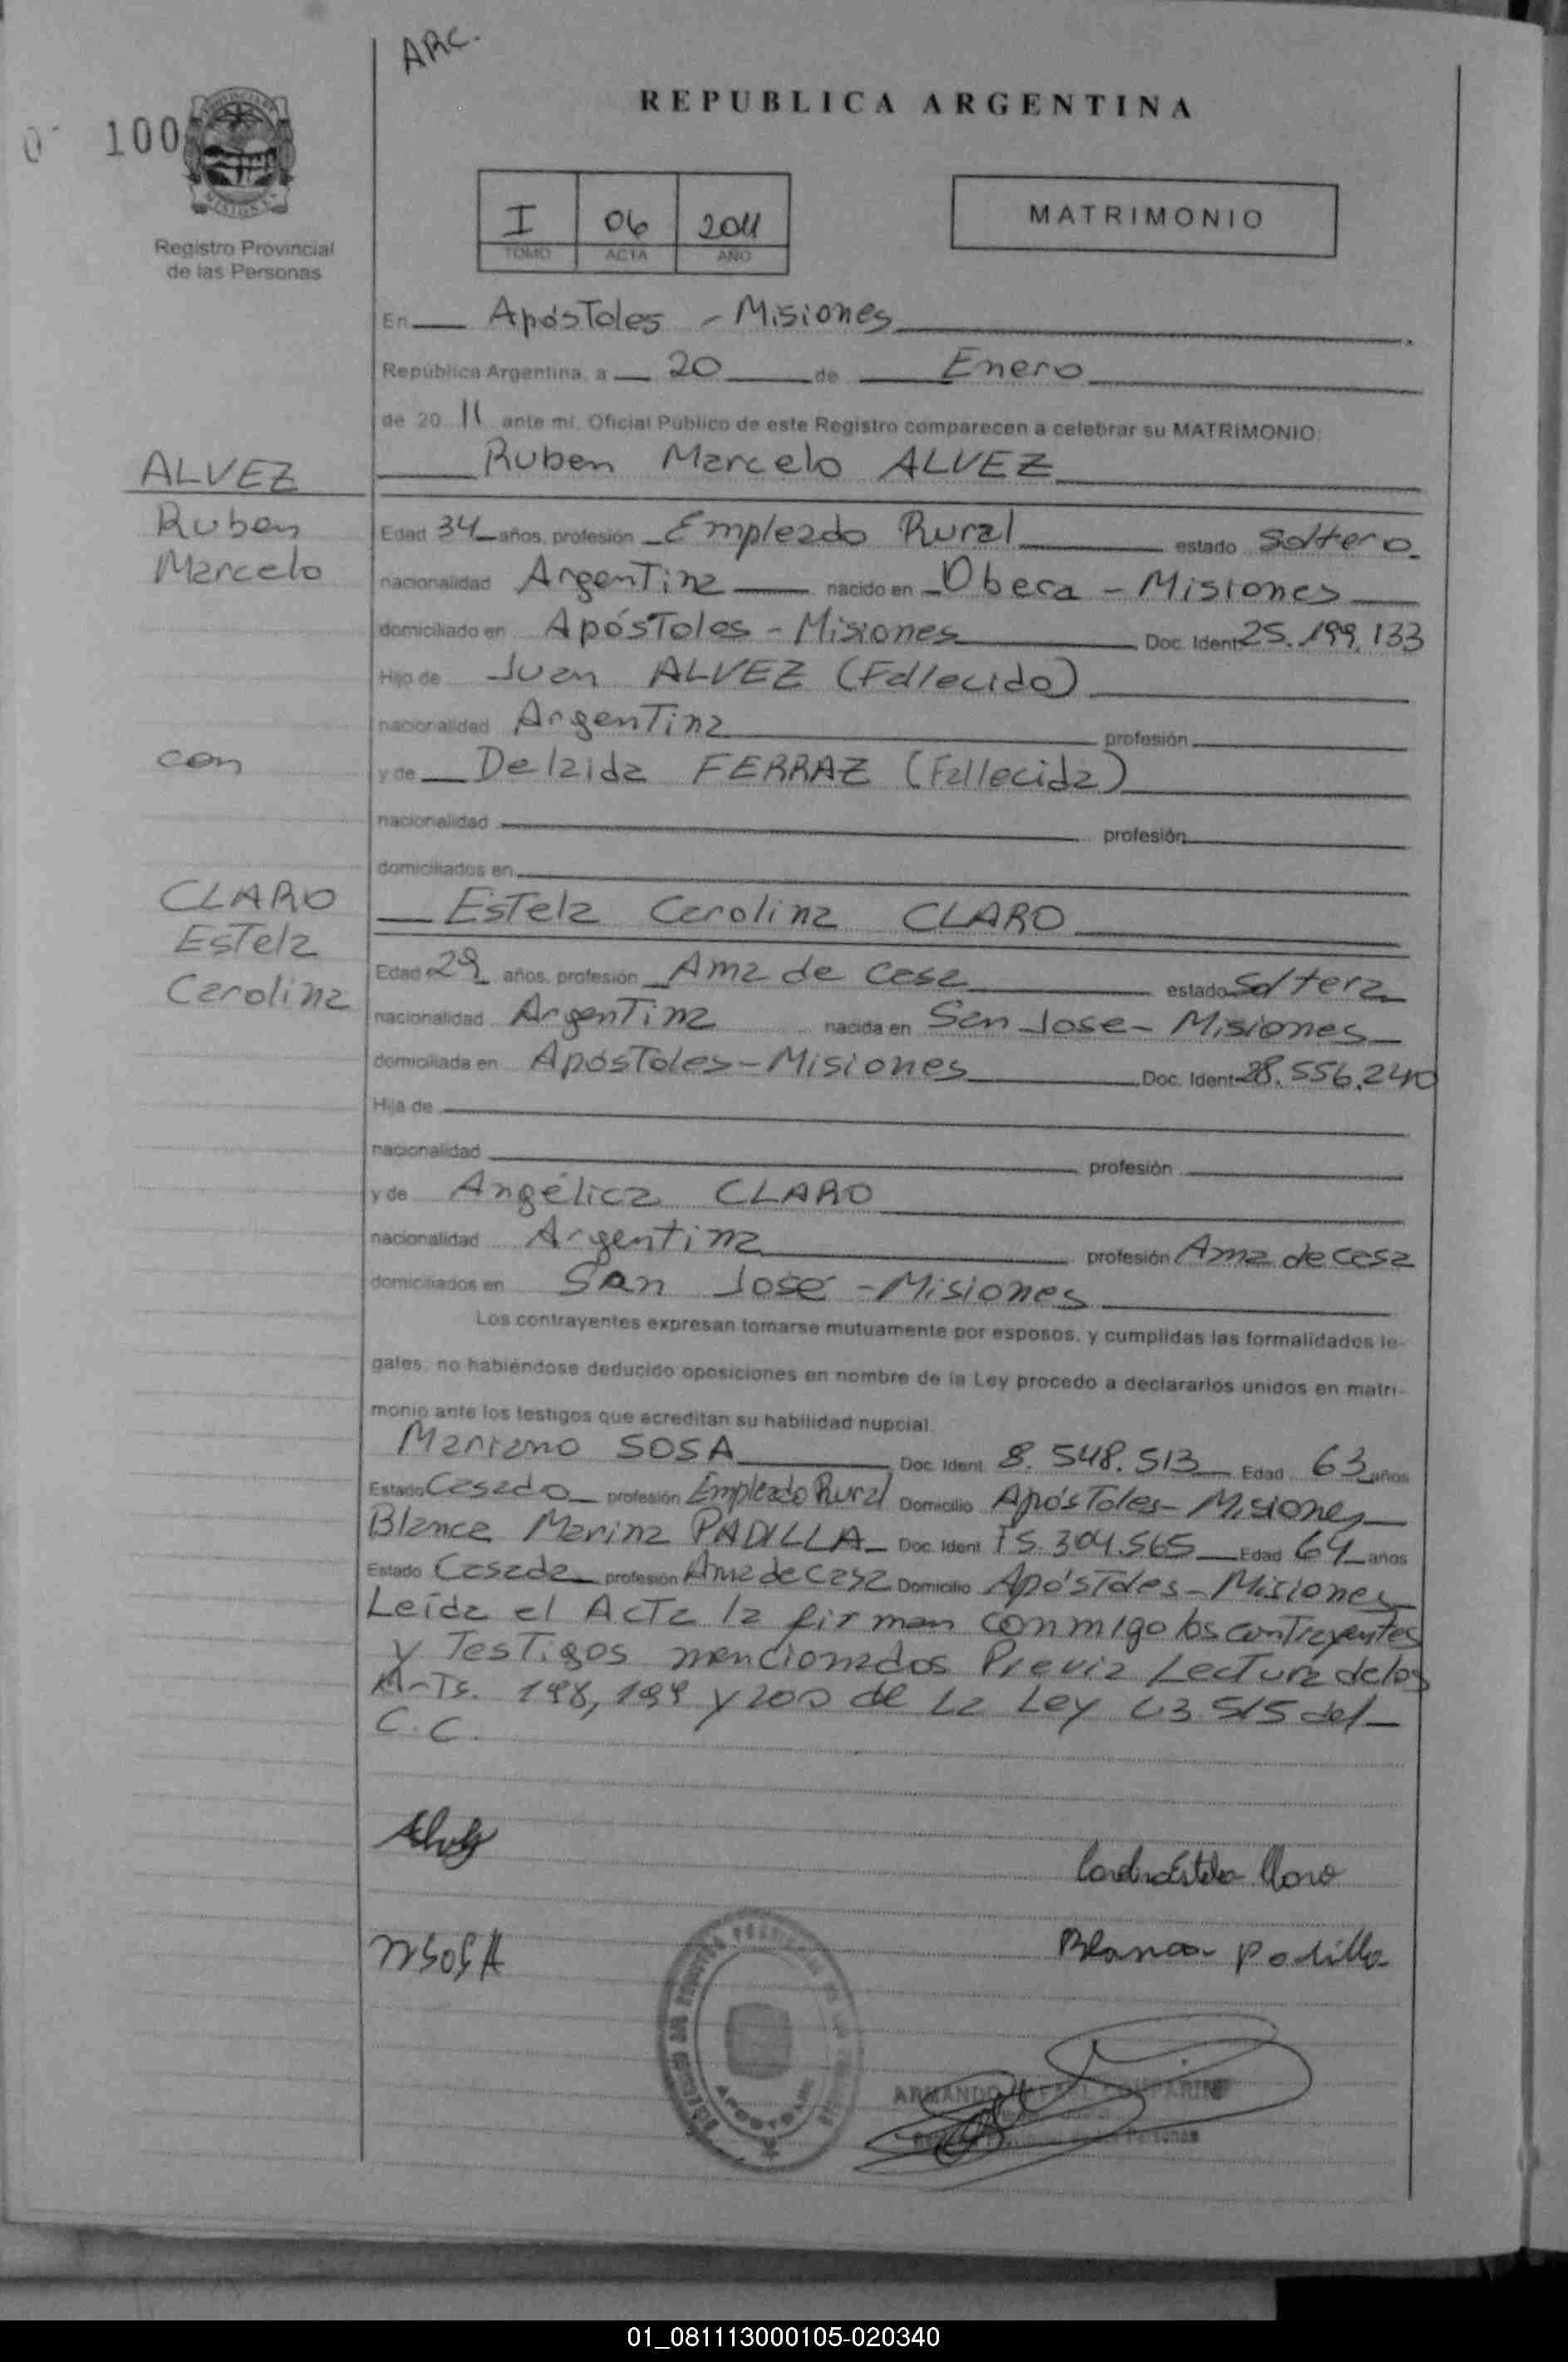 ARC.
REPUBLICA ARGENTINA
100
I 06 2011
TOMO ACTA AÑO
MATRIMONIO
Registro Provincial
de las Personas
En Apóstoles - Misiones
República Argentina, a 20 de Enero
de 20 11 ante mí, Oficial Público de este Registro comparecen a celebrar su MATRIMONIO:
Ruben Marcelo ALVEZ
ALVEZ
Ruben
Marcelo
Edad 34 años, profesión Empleado Rural estado Soltero
nacionalidad Argentina nacido en Obera - Misiones
domiciliado en Apóstoles - Misiones Doc. Ident. 25.199.133
Hijo de Juan ALVEZ (Fallecido)
nacionalidad Argentina profesión
con
y de Delaida FERRAZ (Fallecida)
nacionalidad profesión
domiciliados en
CLARO
Estela
Carolina
Estela Carolina CLARO
Edad 29 años, profesión Ama de Casa estado Soltera
nacionalidad Argentina nacida en San Jose - Misiones
domiciliada en Apóstoles - Misiones Doc. Ident. 28.556.240
Hija de
nacionalidad profesión
y de Angélica CLARO
nacionalidad Argentina profesión Ama de casa
domiciliados en San José - Misiones
Los contrayentes expresan tomarse mutuamente por esposos, y cumplidas las formalidades le-
gales, no habiéndose deducido oposiciones en nombre de la Ley procedo a declararlos unidos en matri-
monio ante los testigos que acreditan su habilidad nupcial.
Mariano SOSA Doc. Ident. 8.548.513 Edad 63 años
Estado Casado profesión Empleado Rural Domicilio Apóstoles - Misiones
Blanca Marina PADILLA Doc. Ident. F5.304.565 Edad 64 años
Estado Casada profesión Ama de Casa Domicilio Apóstoles - Misiones
Leída el Acta la firman conmigo los contrayentes
y Testigos mencionados Previa Lectura de los
Arts. 198, 199 y 200 de la Ley 23.515 del
C.C.
Carolina Estela Claro
MSOSA
Blanca Padilla
APOSTOLES
ARMANDO
Personas
01_081113000105-020340